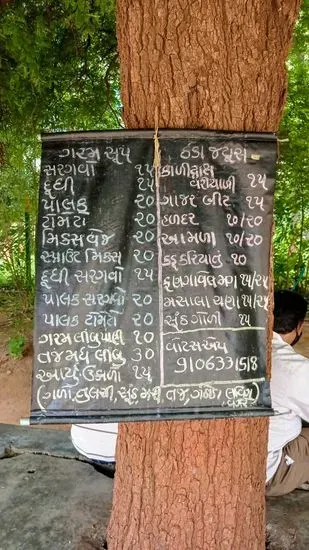 ગરમ સૂપ
સરગવો ૧૫
દૂધી ૧૫
પાલક ૨૦
ટામેટા ૨૦
મિકસ વેજ ૨૦
સ્પ્રાઉટ મિક્સ ૨૦
દૂધી સરગવો ૧૫
પાલક સરગવો ૨૦
પાલક ટામેટો ૨૦
ગરમ લીંબુ પાણી ૧૦
તજ મધ લીંબુ ૩૦
આયુ. ઉકાળો ૧૫
ઠંડા જ્યુસ
કાળીદ્રાક્ષ
વરીયાળી ૧૫
ગાજર બીટ ૧૫
હળદર ૧૦/૨૦
આમળા ૧૦/૨૦
કડુ કરિયાતું ૧૦
ફણગાવેલ મગ ૧૫/૨૫
મસાલા ચણા ૧૫/૨૫
સૂંઠ ગોળી ૧૫
વોટસએપ
9106331518
(ગળો, તુલસી, સૂંઠ મરી તજ, ગંઠોડા, લવિંગ
વગેરે)